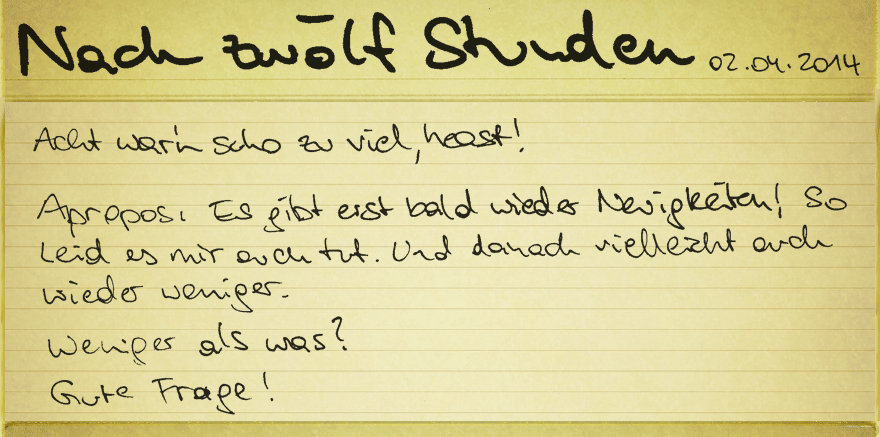 Nach zwölf Stunden 02.04.2014
Acht war'n scho zu viel, heast!
Apropos: Es gibt erst bald wieder Neuigkeiten! So
Leid es mir auch tut. Und danach vielleicht auch
wieder weniger.
Weniger als was?
Gute Frage!